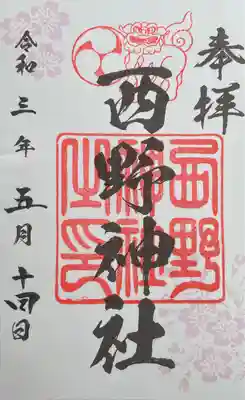 奉拝
西野神社
西野神社之印
令和三年五月十四日